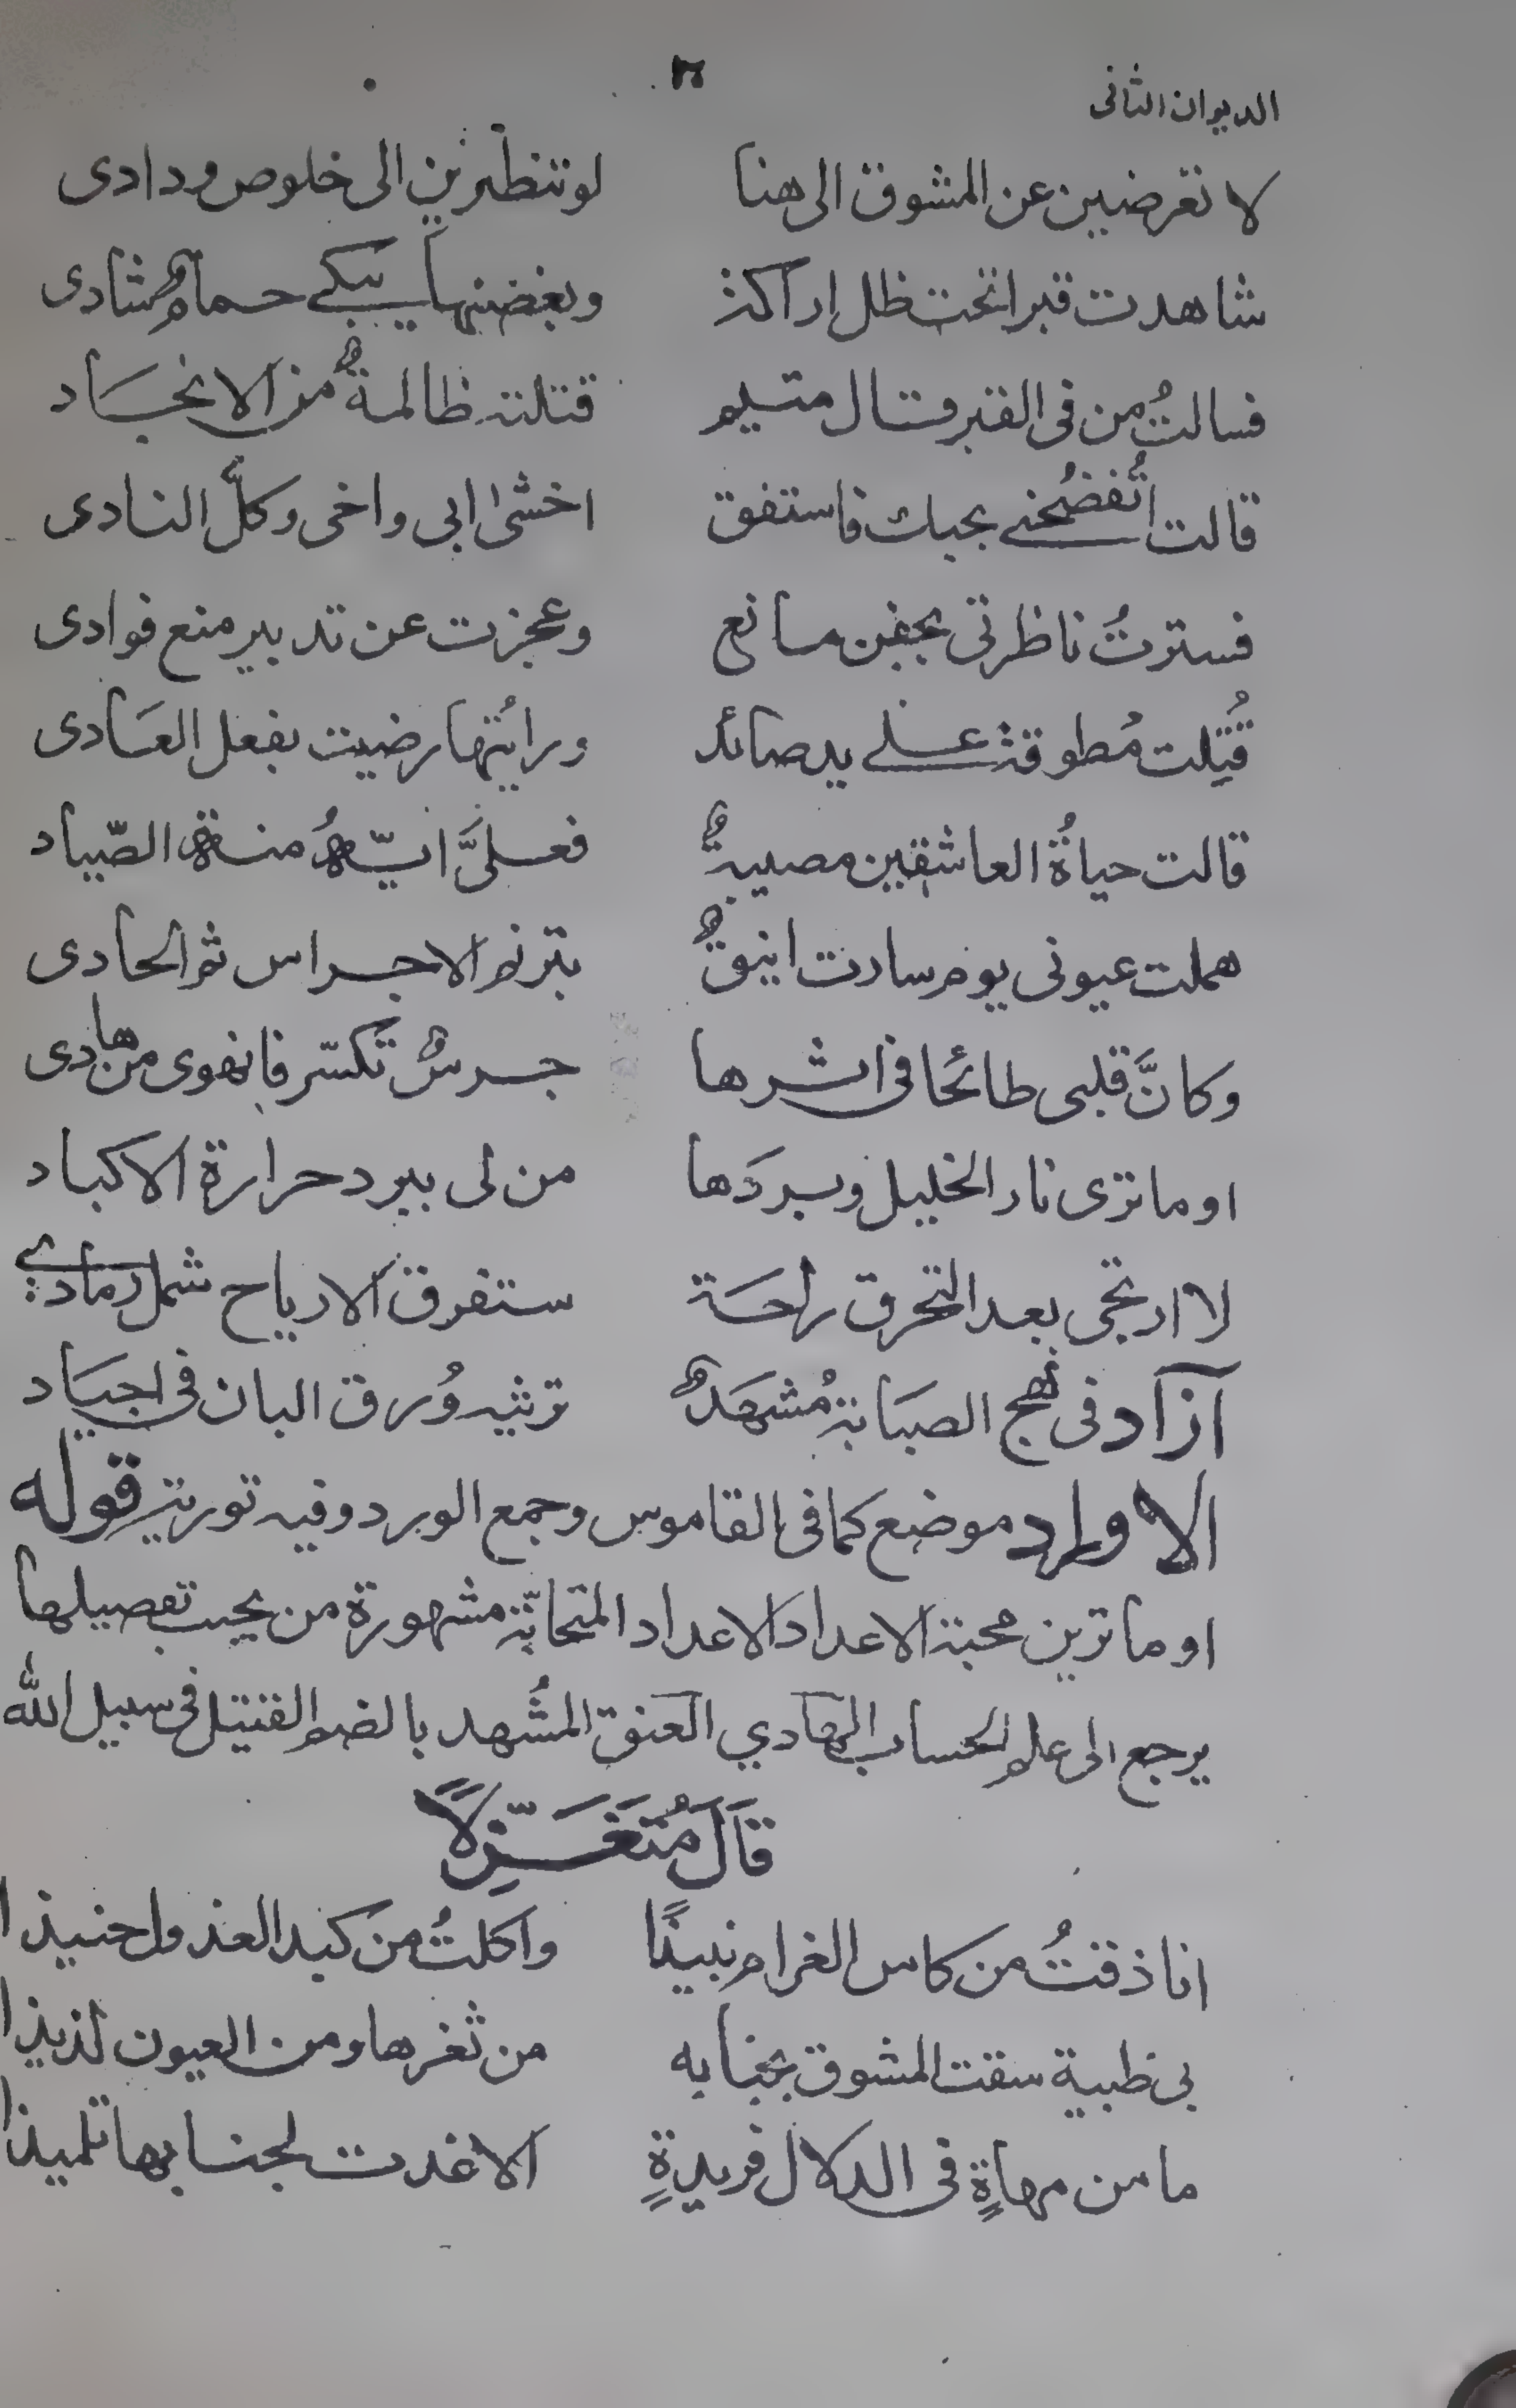 الديوان الثانى
لا تعرضين عن المشوق الى هنا لو تنظرين الى خلوص ودادى
شاهدت قبرا تحت ظل اراكة وبغصنها يبكے حمامٌ شادى
فسالتُ من فى القبر قال متيم قتلته ظالمةٌ من الانجاد
قالت اتُفضُحنے بحبك فاستفق اخشىٰ ابى واخى وكلَّ النادى
فسترتُ ناظرتى بجفن مانع وعجزت عن تدبير منع فوادى
قُتِلت مُطوقة علے يد صائد ورايُتها رضيت بفعل العَادى
قالت حياةُ العاشقين مصيبةٌ فعلىَّ ايّةُ منة الصّياد
هملت عيونى يوم سارت اينقٌ بترنم الاجراس ثم الحادى
وكانَّ قلبى طائحا فى اثرها جرسٌ تكسّر فانهوى من هادى
او ما ترى نار الخليل وبردَها من لى ببرد حرارة الاكباد
لا ارتجى بعد التحرق راحَة ستفرق الارياح شمل رمادے
آزاد فى نهج الصبَابة مُشهَدٌ ترثيه وُرق البان فى اجيَاد
الاوراد موضع كما فى القاموس وجمع الورد وفيه تورية قوله
او ما ترين محبة الاعداد الاعداد المتحابّة مشهورة من يحب تفصيلها
يرجع الى علم الحساب الهادي العنق المشُهد بالضم القتيل فى سبيل الله
قَالَ مُتَغَزِّلًا
انا ذقتُ من كاس الغرام نبيذًا واكلتُ من كبد العذول حنيذا
بى ظبية سقت المشوق بجنابه من ثغرها ومن العيون لذيذا
ما من مهاةٍ فى الدلال فريدةٍ الا غدت لجنابها تلميذا